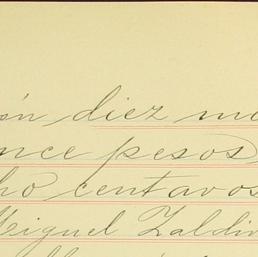 ón diez m
nce pesos
ho centavos
Miguel Zaldiv